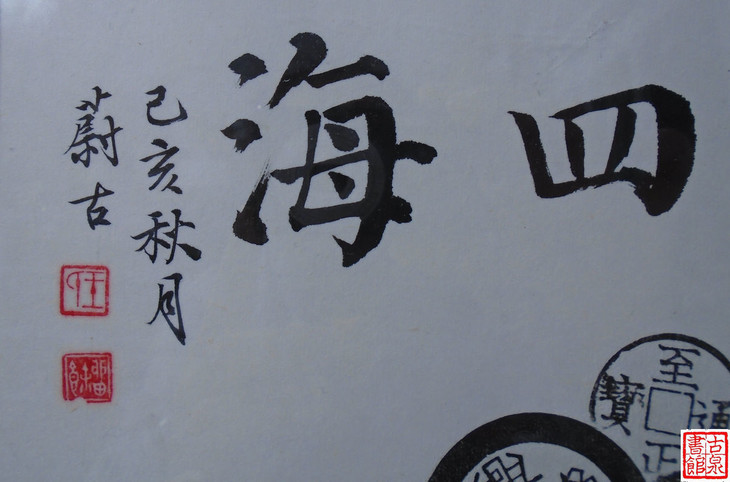 四海
己亥秋月
蔚古
至正通寶
古泉書館